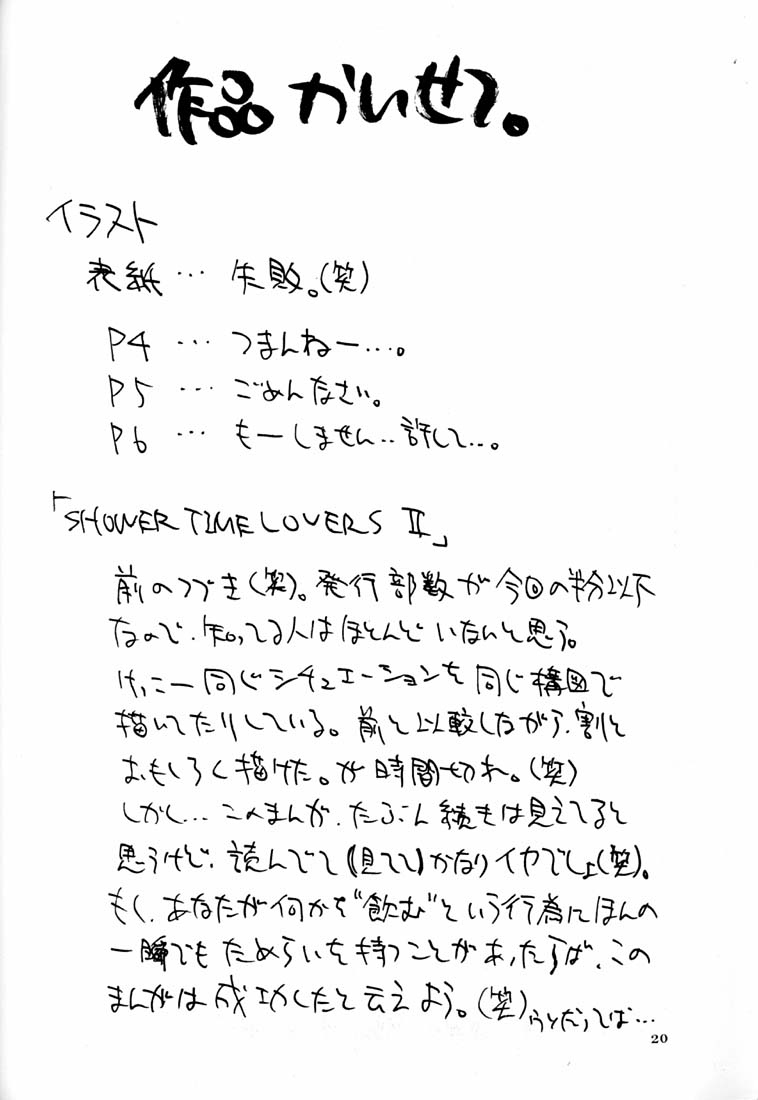 作品かいせつ。
イラスト
表紙… 失敗。(笑)
P4 … つまんねー…。
P5 … ごめんなさい。
P6 … もーしません..許して…。
「SHOWER TIME LOVERS II」
前のつづき(笑)。発行部数が今回の半分以下
なので、知ってる人はほとんどいないと思う。
けっこー同じシチュエーションを同じ構図で
描いてたりしている。前と比較しながら、割と
おもしろく描けた。が時間切れ。(笑)
しかし…このまんが、たぶん続きは見えてると
思うけど、読んでて(見てて)かなりイヤでしょ(笑)。
もし、あなたが何かを"飲む"という行為にほんの
一瞬でもためらいを持つことがあったらば、この
まんがは成功したと云えよう。(笑)うそだってば…
20